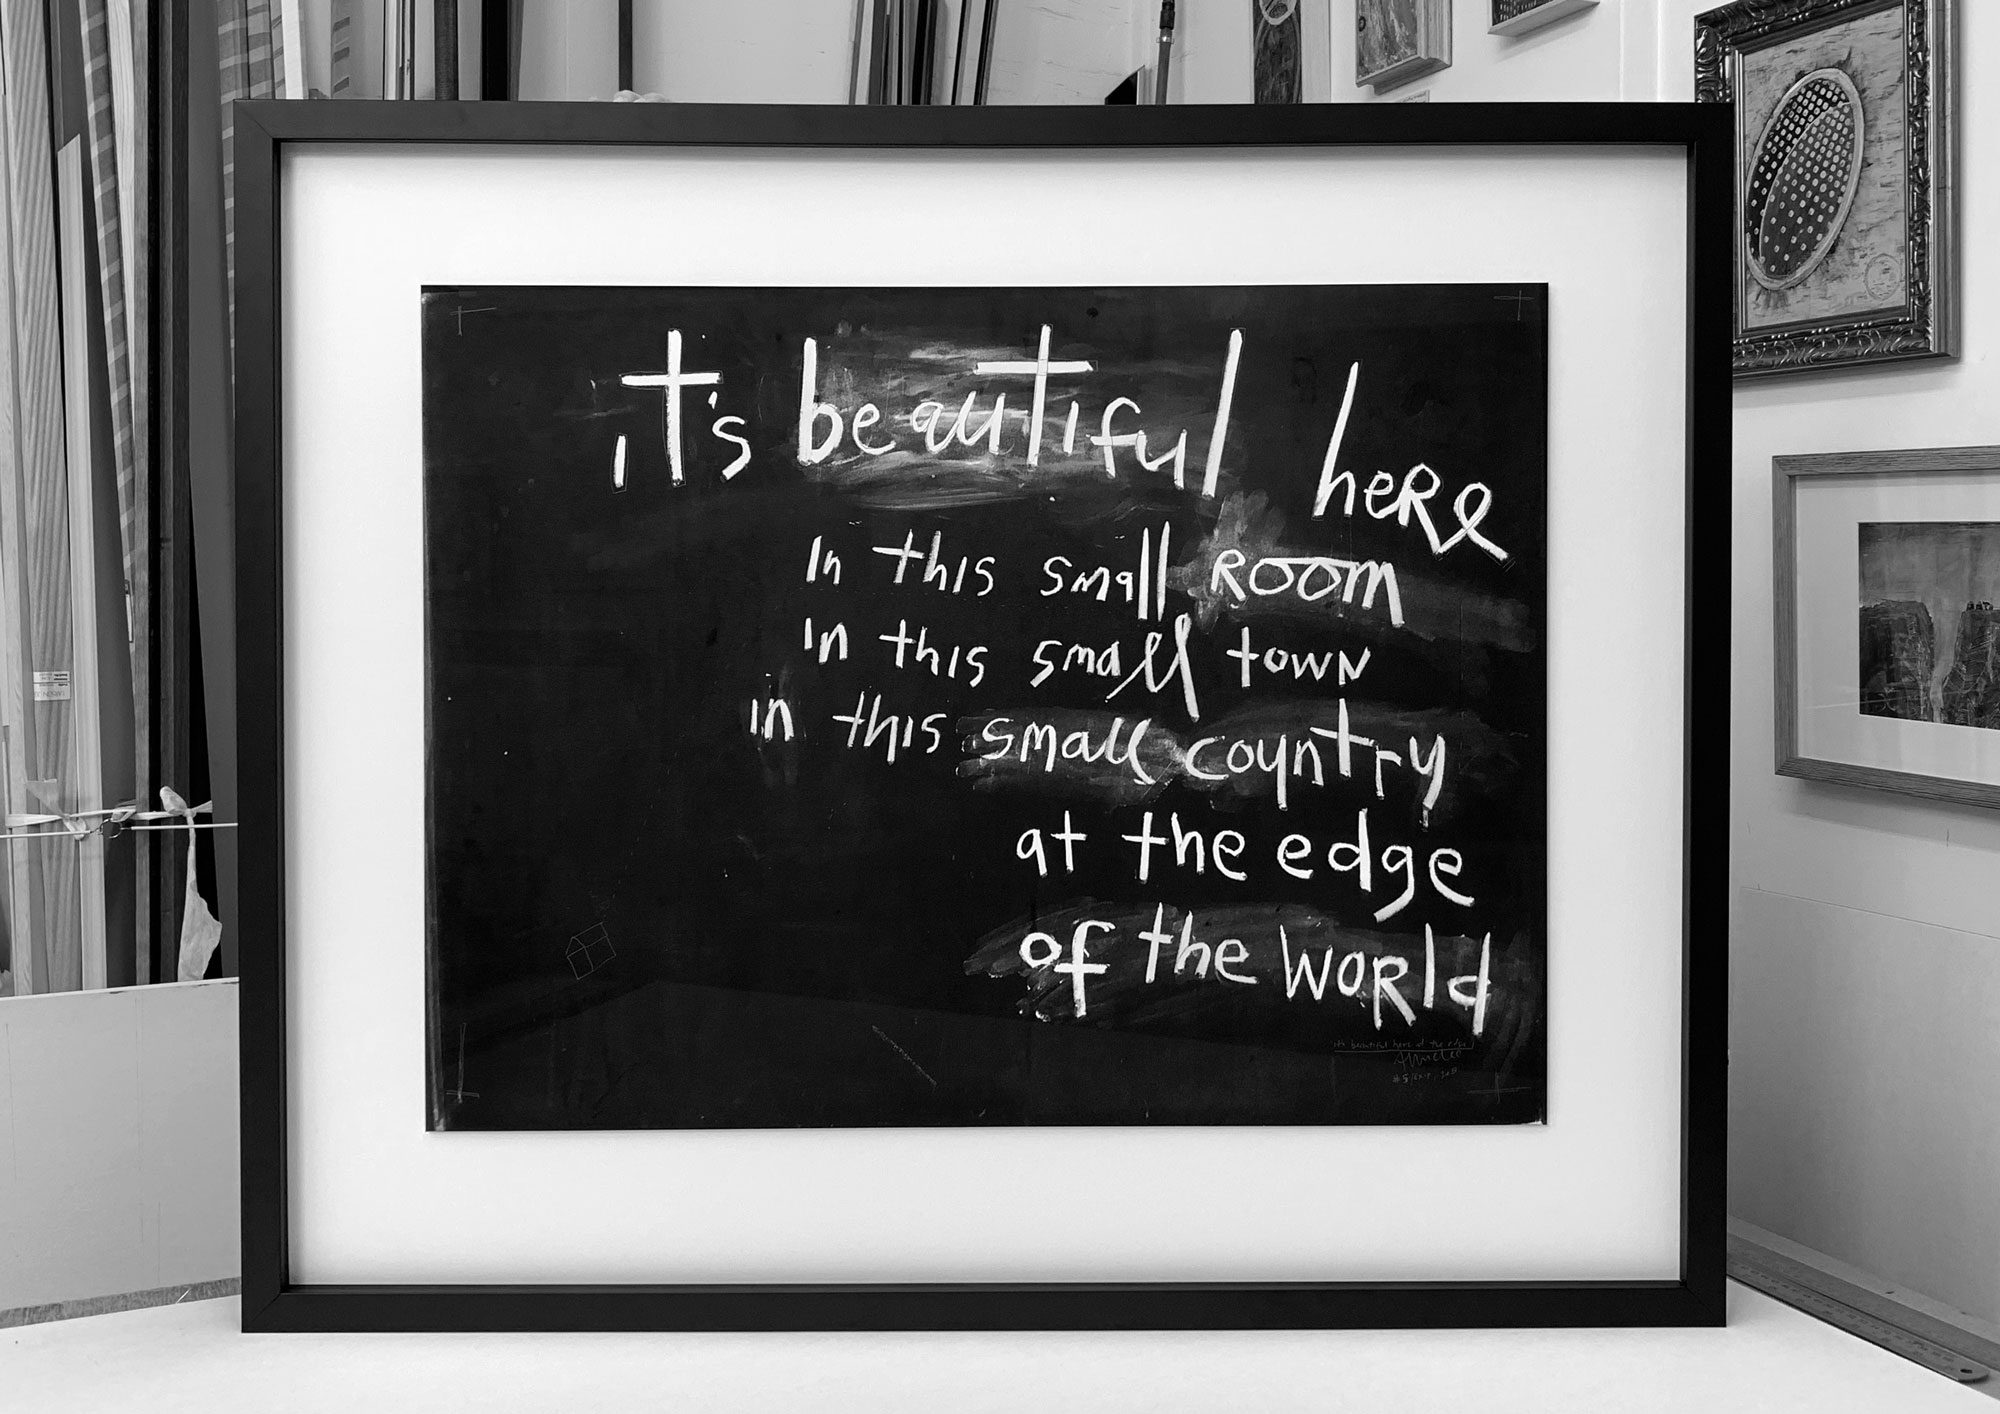 it's beautiful here
in this small Room
in this small town
in this small country
at the edge
of the WORld
it's beautiful here at the edge